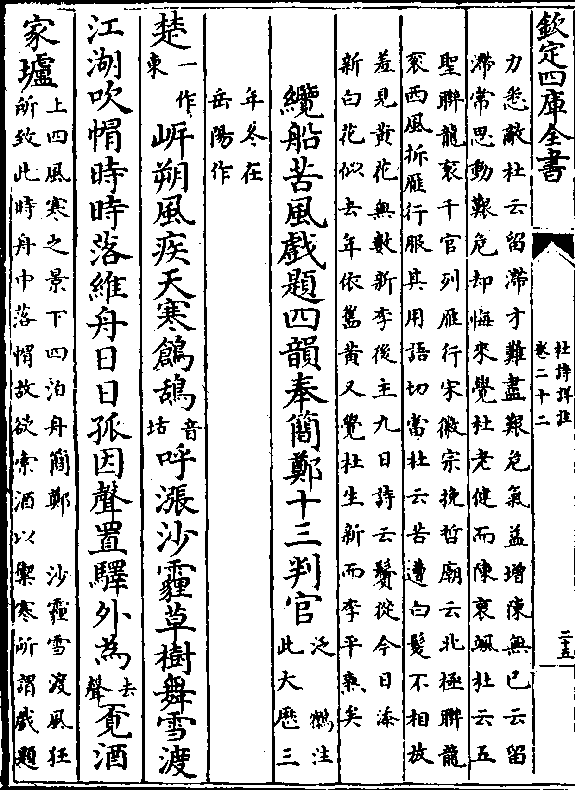 欽定四庫全書
杜詩詳註
卷二十二
二十五
力悉敵杜云留滯才難盡艱危氣益增陳無已云留
滯常思動艱危却悔來覺杜老健而陳衰颯杜云五
聖聯龍衮千官列雁行宋徽宗挽哲廟云北極聯龍
衮西風拆雁行服其用語切當杜云苦遭白髮不相放
羞見黃花無數新李後主九日詩云鬢從今日添
新白花似去年依舊黃又覺杜生新而李平熟矣
纜船苦風戲題四韻奉簡鄭十三判官泛 鶴注
此大歷三
年冬在
岳陽作
楚一作東岍朔風疾天寒鶬鴰音括呼漲沙霾草樹舞雪渡
江湖吹帽時時落維舟日日孤因聲置驛外為去聲覓酒
家壚上四風寒之景下四泊舟簡鄭 沙霾雪渡風狂
所致此時舟中落帽故欲索酒以禦寒所謂戲題